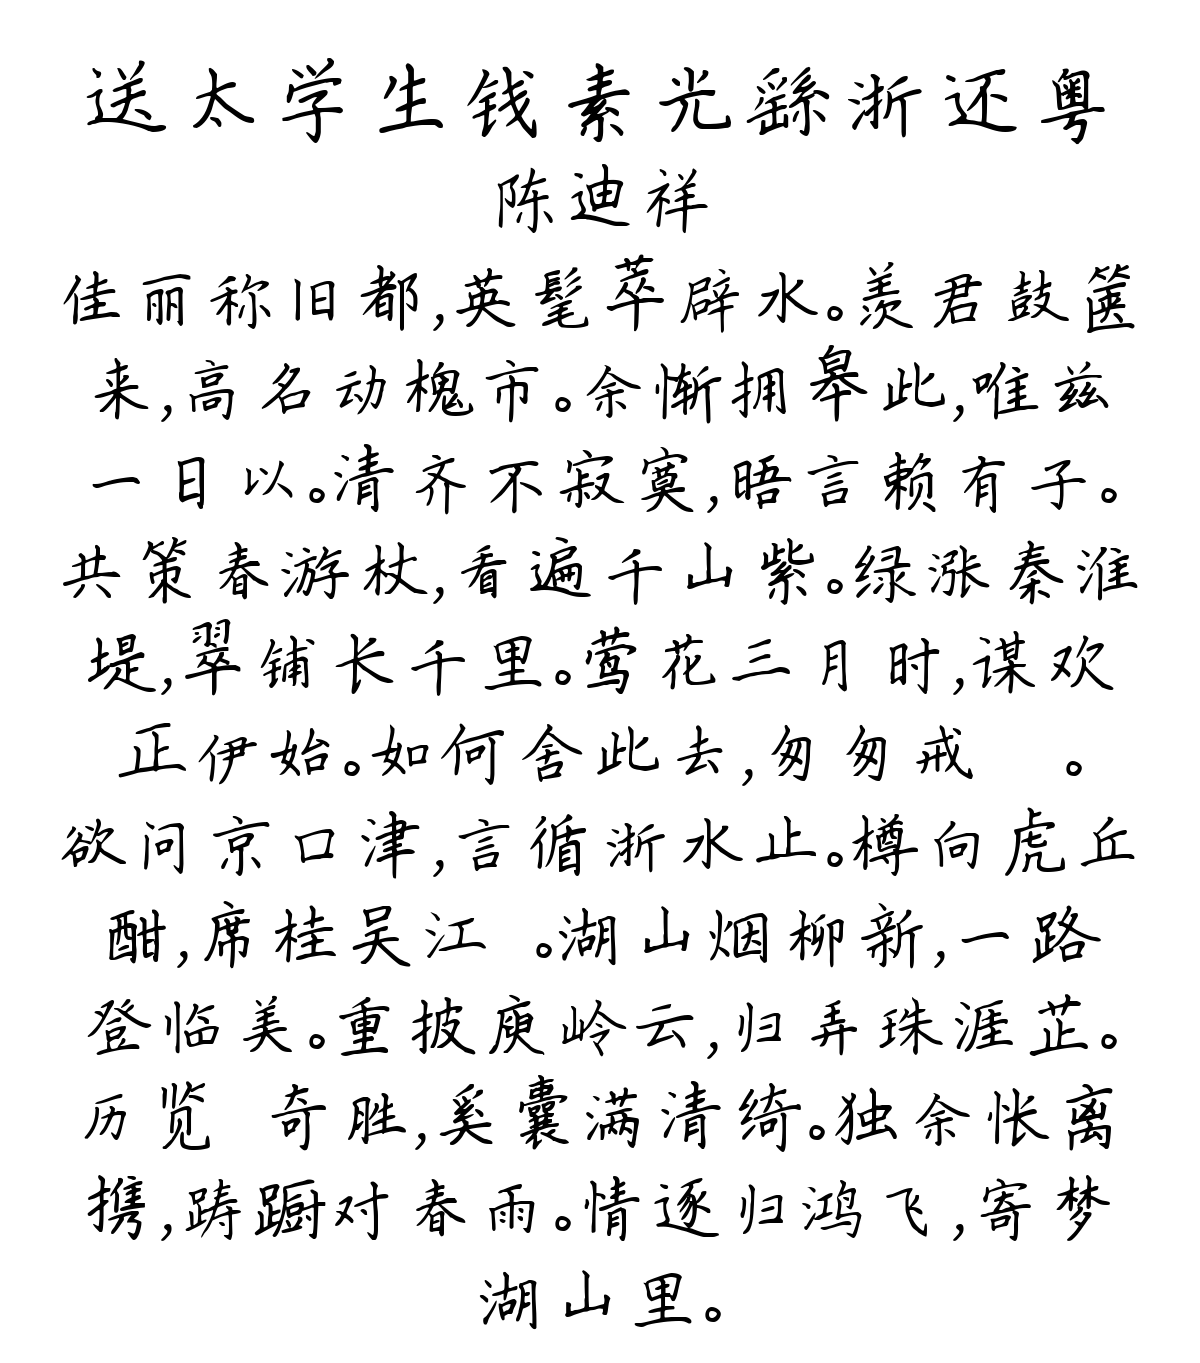 送太学生钱素光繇浙还粤
陈迪祥
佳丽称旧都,英髦萃辟水。羡君鼓箧
来,高名动槐市。余惭拥皋此,唯兹
一日以。清齐不寂寞,晤言赖有子。
共策春游杖,看遍千山紫。绿涨秦淮
堤,翠铺长千里。莺花三月时,谋欢
正伊始。如何舍此去,匆匆戒 。
欲问京口津,言循浙水止。樽向虎丘
酣,席桂吴江 。湖山烟柳新,一路
登临美。重披庾岭云,归弄珠涯芷。
历览 奇胜,奚囊满清绮。独余怅离
携,踌蹰对春雨。情逐归鸿飞,寄梦
湖山里。